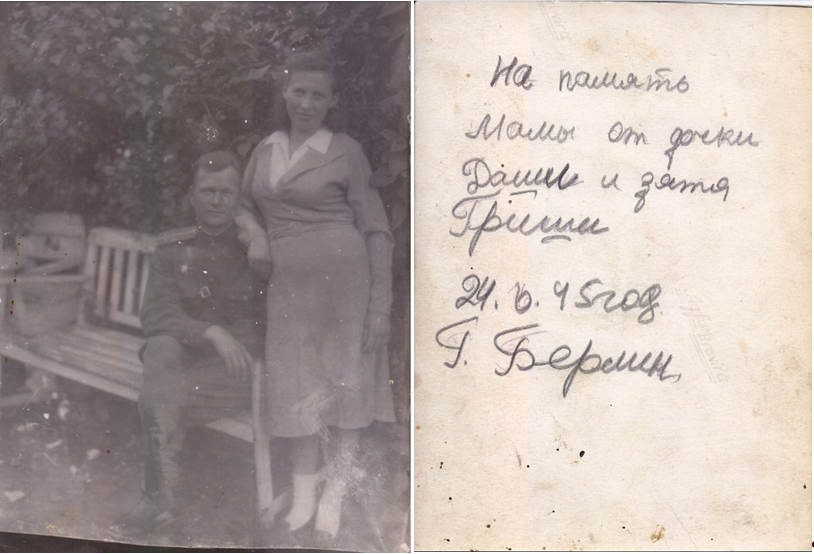 На память
Мамы от дочки
Даши и зятя
Гриши
24. 6. 45 год
Г. Берлин.